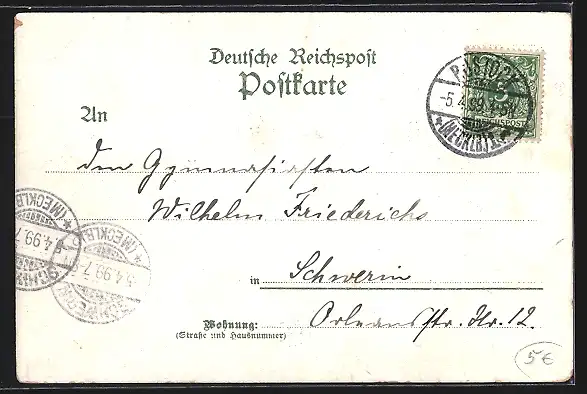 Deutsche Reichspost
Postkarte
An
den Gymnasiasten
Wilhelm Friederichs
in Schwerin
Wohnung: Orleansstr. Nr. 12.
(Straße und Hausnummer)
ROSTOCK
5.4.99.
*(MECKLB)1.c*
REICHSPOST
*(MECKLB.
4.99.7
5.4.99.7
SCHWERIN
5€